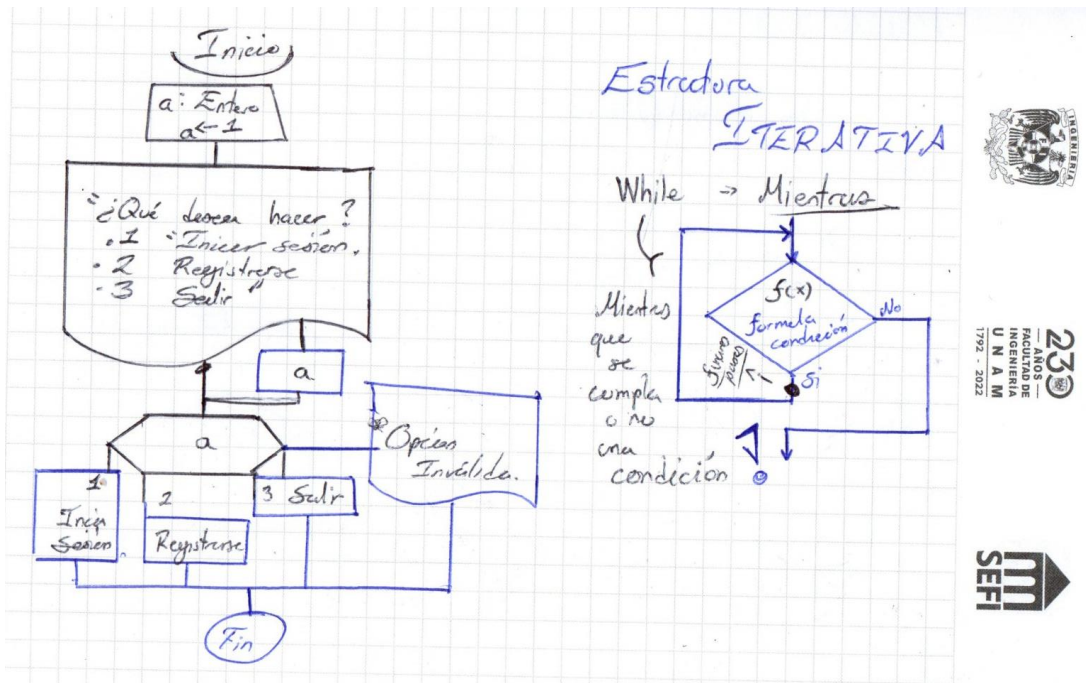 Inicio
a: Entero
a ← 1
"¿Qué desea hacer?
.1 "Inicer sesión.
.2 Registrarse
.3 Salir"
a
a
1
2
3 Salir
Opción
Inválida.
Inicia
Sesión.
Registrarse
Fin
Estructura
ITERATIVA
While → Mientras
Mientras
que
se
cumpla
o no
una
condición
f(x)
formula
condición
No
Si
INGENIERIA
230
AÑOS
FACULTAD DE
INGENIERÍA
UNAM
1792 - 2022
SEFI